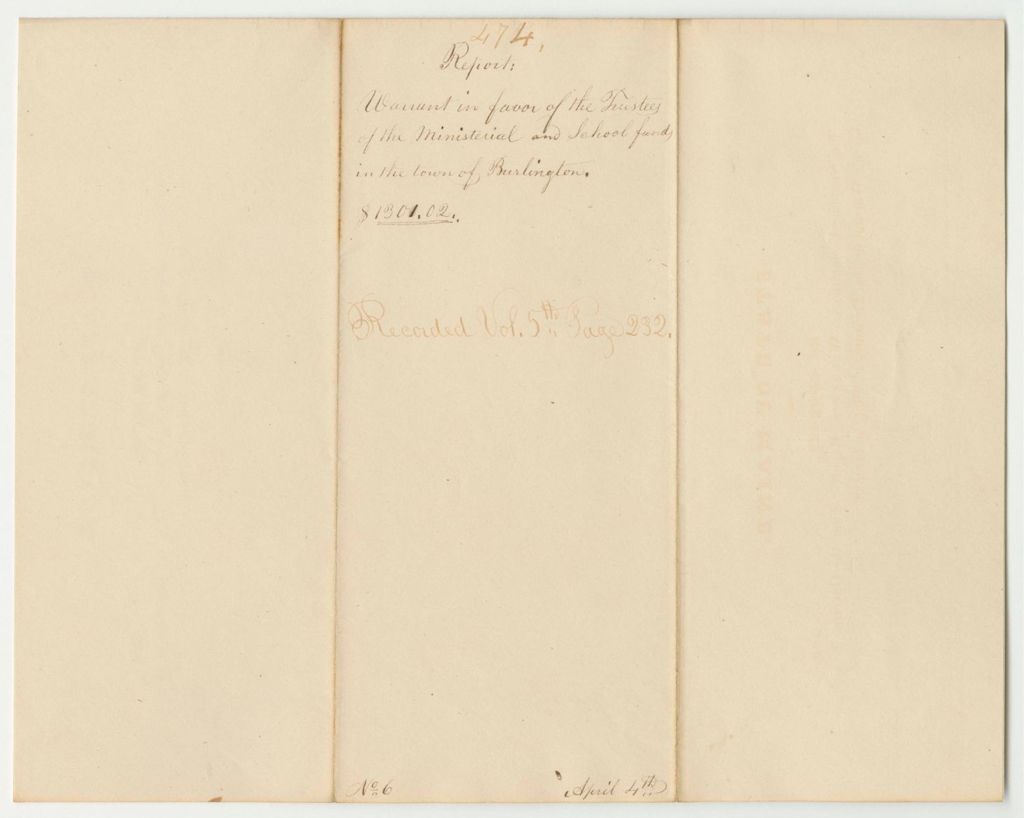 474.
Report:
Warrant in favor of the Trustees
of the Ministerial and School funds
in the town of Burlington.
$1301.02.
Recorded Vol. 5th Page 232.
No 6
April 4th
STATE OF MAINE